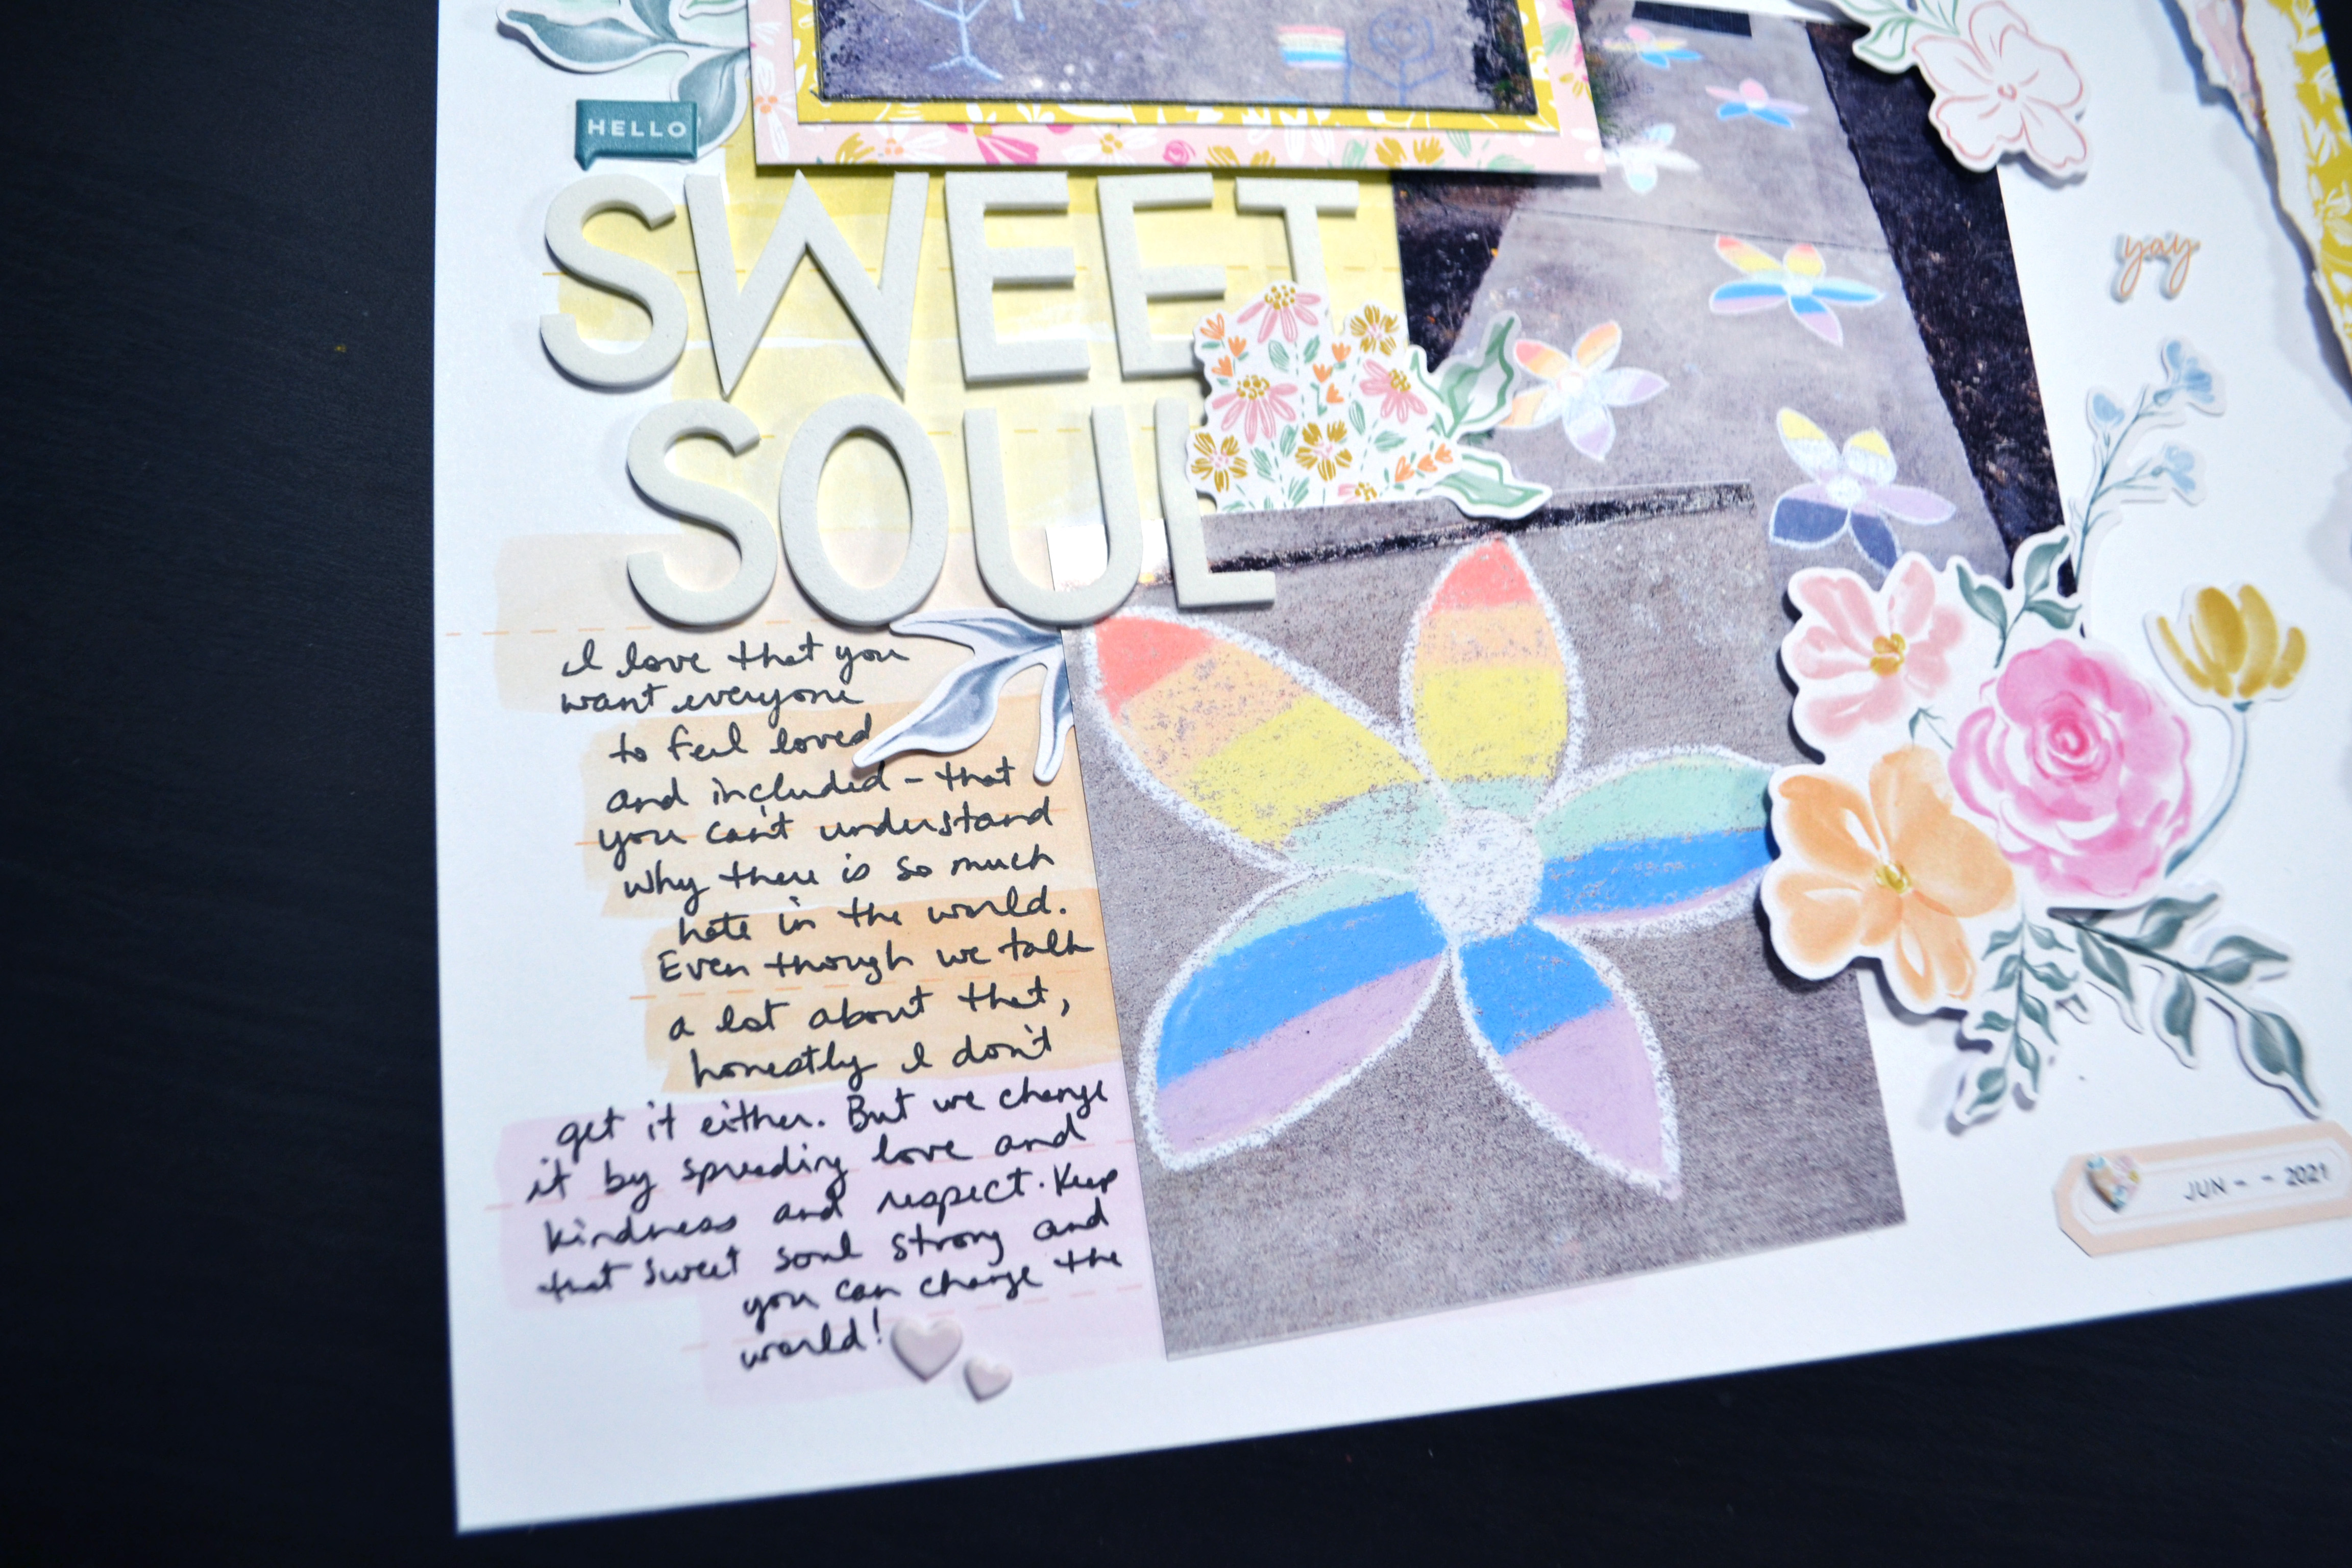 HELLO
SWEET
SOUL
yay
I love that you
want everyone
to feel loved
and included - that
you can't understand
why there is so much
hate in the world.
Even though we talk
a lot about that,
honestly I don't
get it either. But we change
it by spreading love and
kindness and respect. Keep
that sweet soul strong and
you can change the
world!
JUN - - 2021